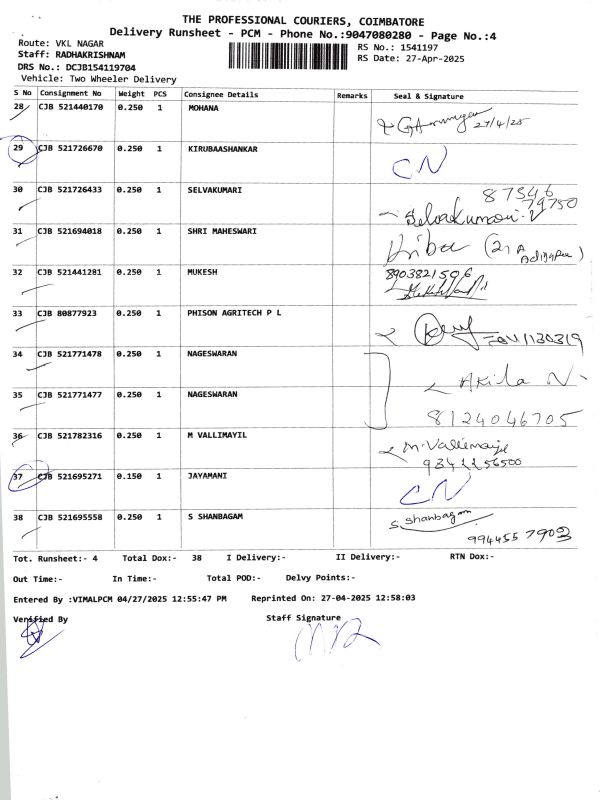 THE PROFESSIONAL COURIERS, COIMBATORE
Delivery Runsheet - PCM - Phone No.:9047080280 - Page No.:4
Route: VKL NAGAR
RS No.: 1541197
Staff: RADHAKRISHNAM
RS Date: 27-Apr-2025
DRS No.: DCJB154119704
Vehicle: Two Wheeler Delivery
S No Consignment No Weight PCS Consignee Details Remarks Seal & Signature
28 CJB 521440170 0.250 1 MOHANA
27/4/25
29 CJB 521726670 0.250 1 KIRUBAASHANKAR CN
30 CJB 521726433 0.250 1 SELVAKUMARI 87546
79750
Selvakumari. V
31 CJB 521694018 0.250 1 SHRI MAHESWARI
32 CJB 521441281 0.250 1 MUKESH 8903821596
33 CJB 80877923 0.250 1 PHISON AGRITECH P L
34 CJB 521771478 0.250 1 NAGESWARAN Akila N
35 CJB 521771477 0.250 1 NAGESWARAN
8124046705
36 CJB 521782316 0.250 1 M VALLIMAYIL M. Vallimayil
37 CJB 521695271 0.150 1 JAYAMANI CN
38 CJB 521695558 0.250 1 S SHANBAGAM S. Shanbagam
9944557902
Tot. Runsheet:- 4 Total Dox:- 38 I Delivery:- II Delivery:- RTN Dox:-
Out Time:- In Time:- Total POD:- Delvy Points:-
Entered By :VIMALPCM 04/27/2025 12:55:47 PM Reprinted On: 27-04-2025 12:58:03
Verified By Staff Signature